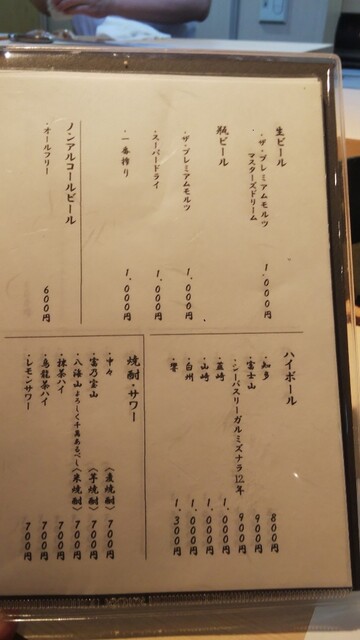 生ビール
・ザ・プレミアムモルツ
マスターズドリーム
1,000円
瓶ビール
・ザ・プレミアムモルツ
1,000円
・スーパードライ
1,000円
・一番搾り
1,000円
ノンアルコールビール
・オールフリー
600円
ハイボール
・知多
800円
・富士山
900円
・シーバスリーガルミズナラ12年
900円
・韮崎
1,000円
・山崎
1,000円
・白州
1,000円
・響
1,300円
焼酎・サワー
・中々〈麦焼酎〉
700円
・富乃宝山〈芋焼酎〉
700円
・八海山よろしく千萬あるべし〈米焼酎〉
700円
・抹茶ハイ
700円
・烏龍茶ハイ
700円
・レモンサワー
700円